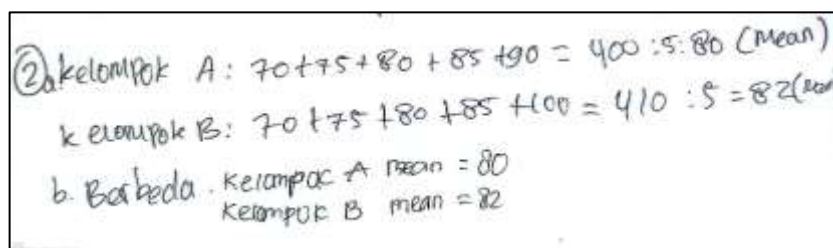 2.a kelompok A: 70+75+80+85+90 = 400 :5: 80 (Mean)
kelompok B: 70+75+80+85+100 = 410 :5 = 82 (mean
b. Berbeda. Kelompac A mean = 80
Kelompok B mean = 82